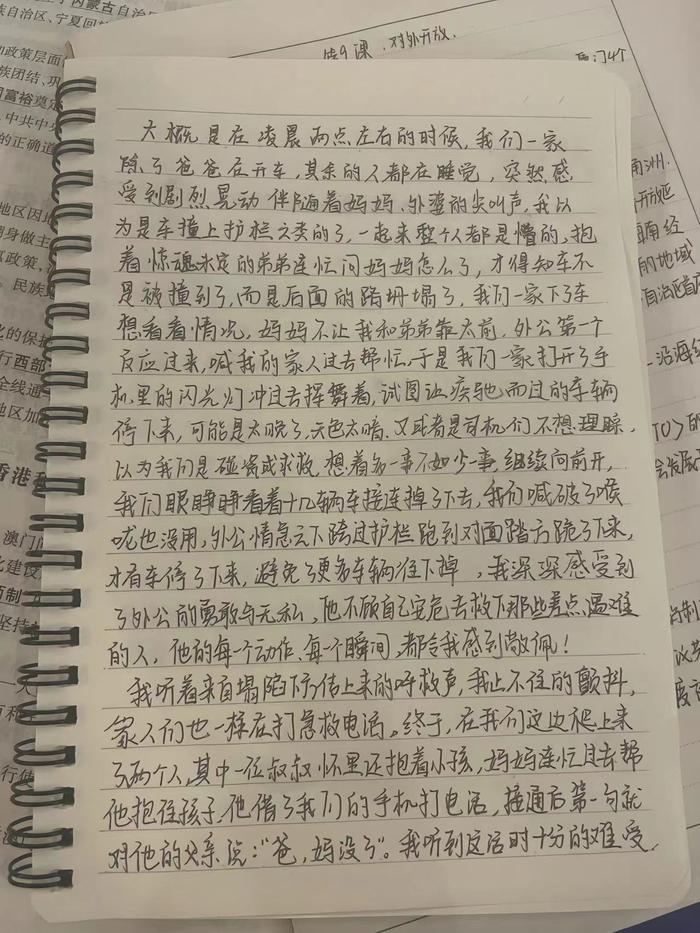 第9课、对外开放.
大概是在凌晨两点左右的时候,我们一家
除了爸爸在开车,其余的人都在睡觉,突然感
受到剧烈晃动伴随着妈妈、外婆的尖叫声,我以
为是车撞上护栏之类的了,一起来整个人都是懵的,抱
着惊魂未定的弟弟连忙问妈妈怎么了,才得知车不
是被撞到了,而是后面的路坍塌了,我们一家下了车
想看看情况,妈妈不让我和弟弟靠太前,外公第一个
反应过来,喊我的家人过去帮忙,于是我们一家打开了手
机里的闪光灯冲过去挥舞着,试图让疾驰而过的车辆
停下来,可能是太晚了,天色太暗,又或者是司机们不想理睬,
以为我们是碰瓷或求救,想着多一事不如少一事,继续向前开,
我们眼睁睁看着十几辆车接连掉了下去,我们喊破了喉
咙也没用,外公情急之下跨过护栏跑到对面路方跪了下来,
才有车停了下来,避免了更多车辆往下掉,我深深感受到
了外公的勇敢与无私,他不顾自己安危去救下那些差点遇难
的人,他的每一个动作、每一个瞬间,都令我感到敬佩!
我听着来自塌陷下方传上来的呼救声,我止不住的颤抖,
家人们也一样在打急救电话。终于,在我们这边爬上来
了两个人,其中一位叔叔怀里还抱着小孩,妈妈连忙过去帮
他抱住孩子,他借了我们的手机打电话,接通后第一句就
对他的父亲说:"爸,妈没了"。我听到这话时十分的难受,